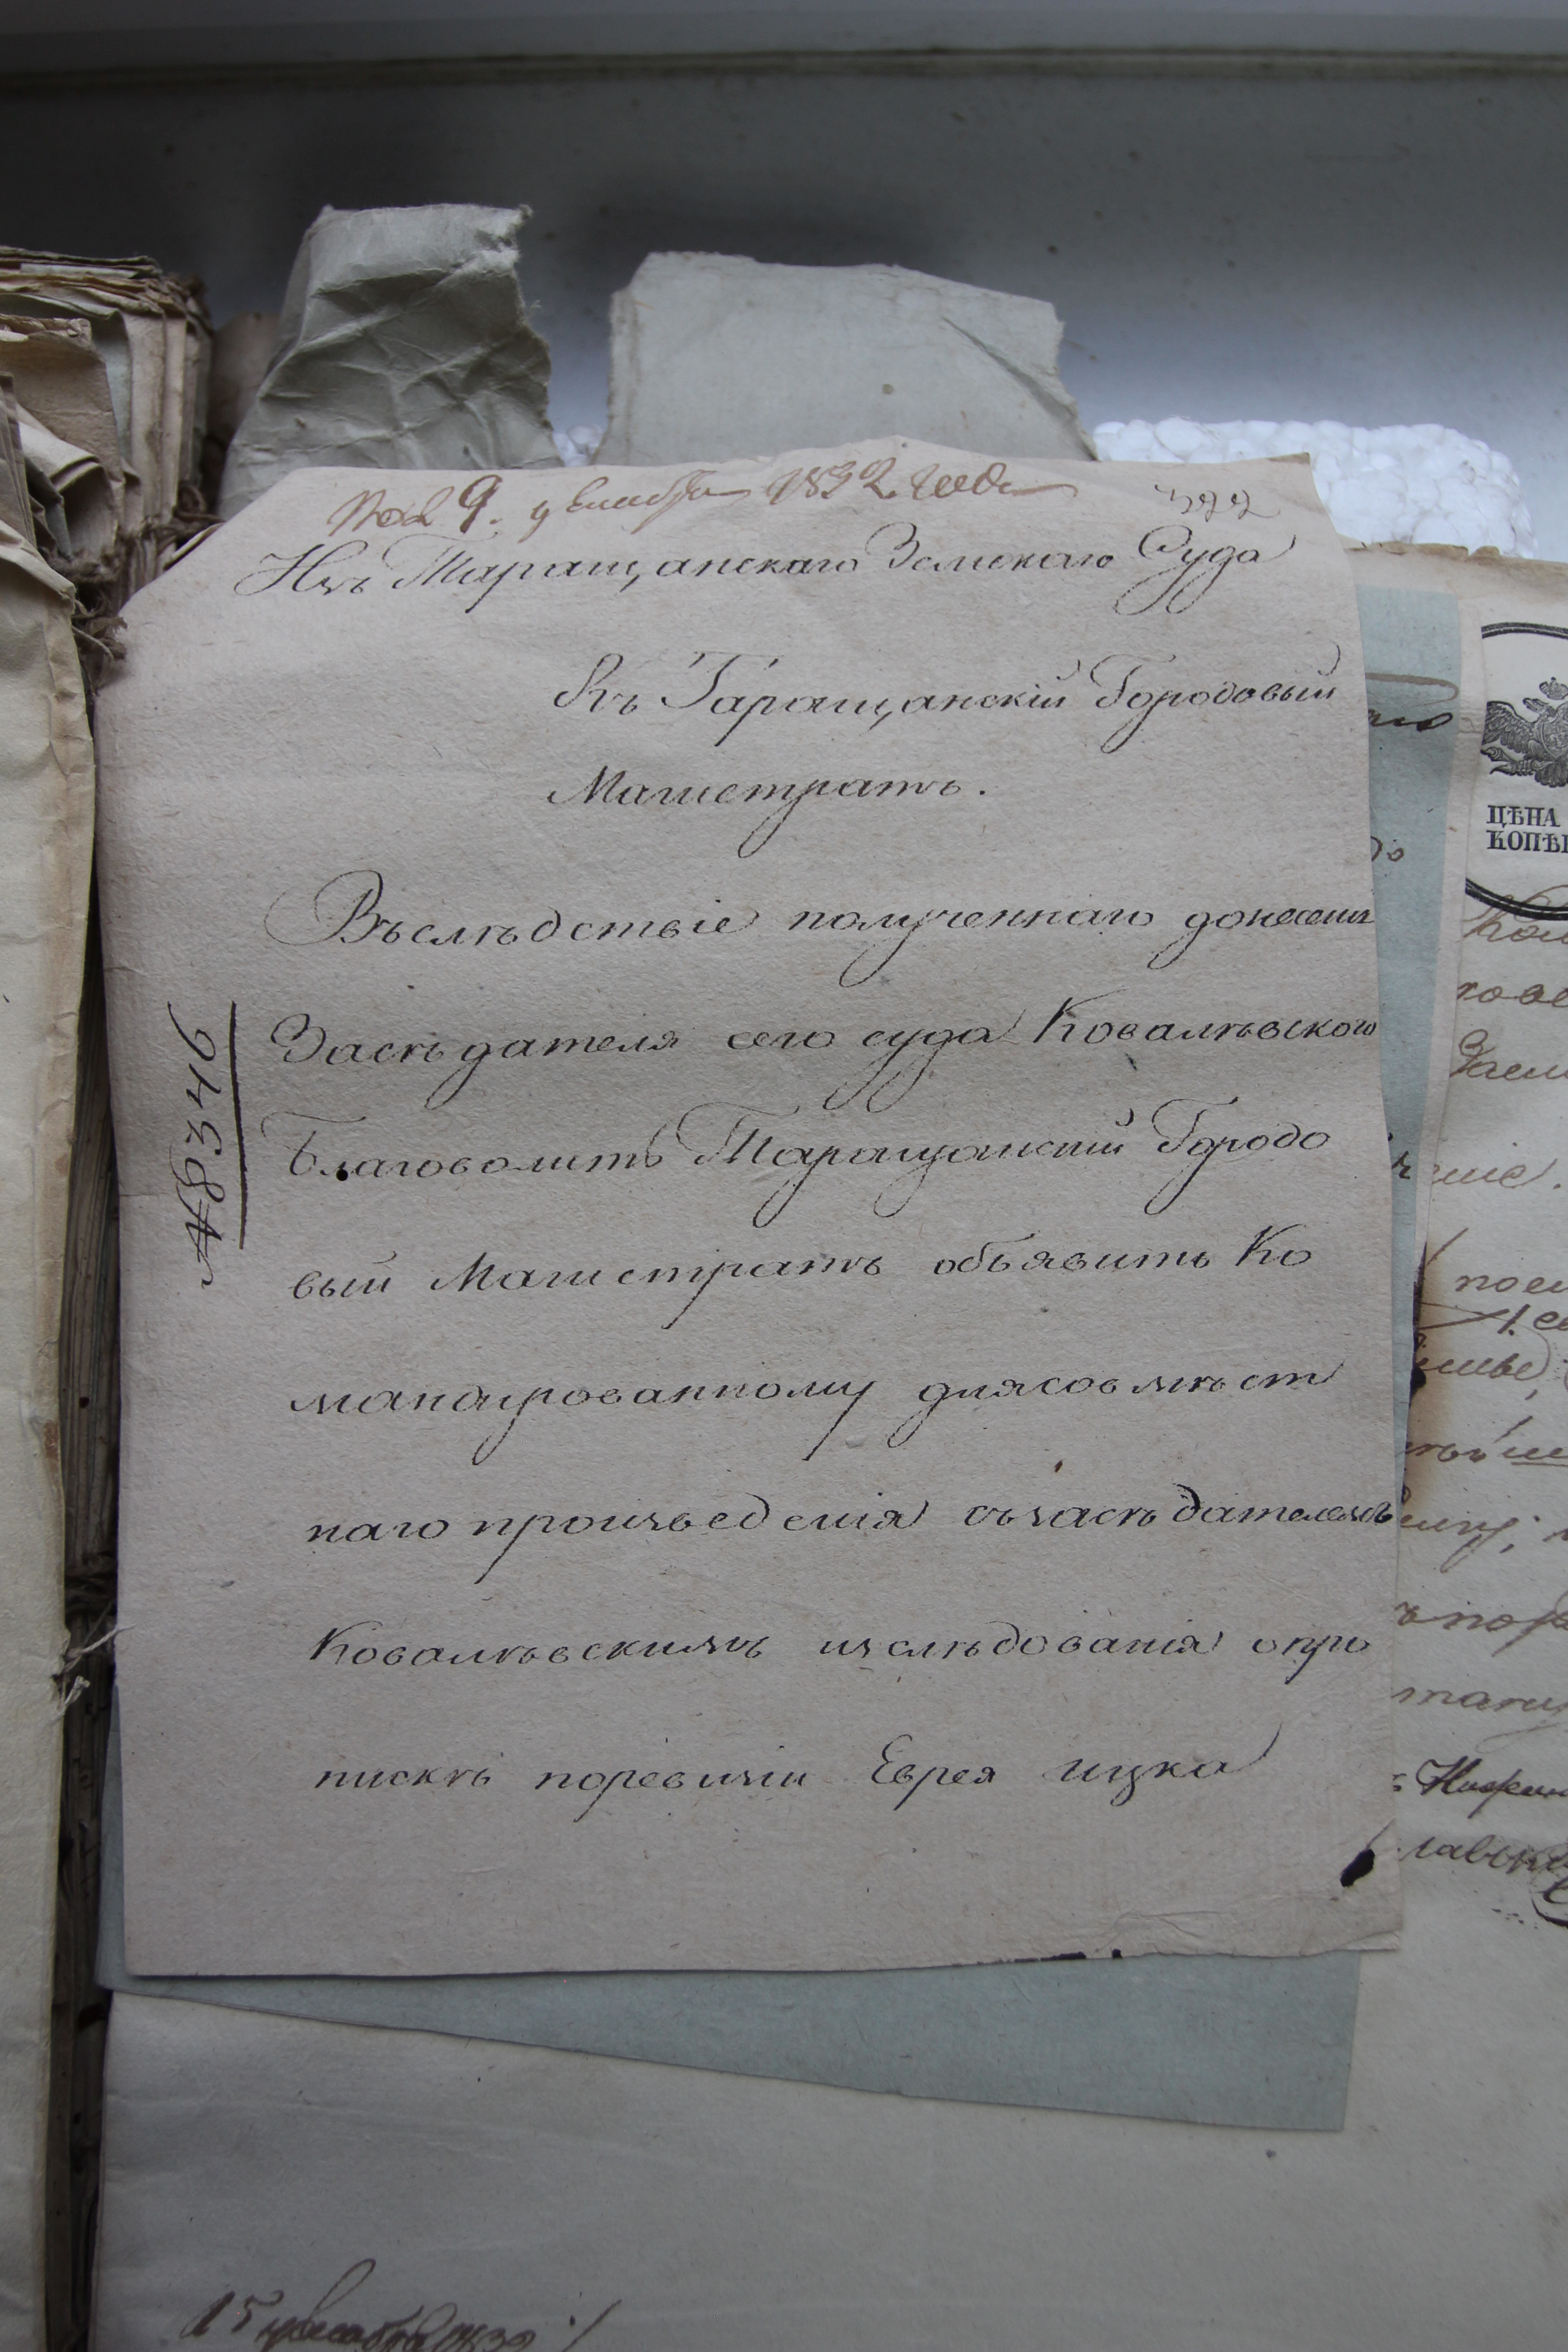 Пол 9. декабря 1832. года
322
Изъ Таращанскаго Земскаго Суда
Въ Таращанскій Городовый
Магистратъ.
Въслѣдствіе полученнаго донесенія
Засѣдателя сего суда Ковалѣвского
Благоволитъ Таращанский Городо
вый Магистратъ объявить Ко
мандированному длясовмѣст
наго произведенія съзасѣдателемъ
Ковалѣвскимъ изслѣдованія опри
пискѣ поревизіи Еврея ицка
№ 8346
ЦѢНА
КОПѢ
15 декабря 1832